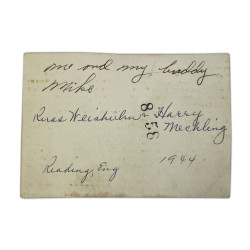 me and my buddy
Mike
Russ Weishuhn & Harry
Mechling
856
Reading, Eng 1944